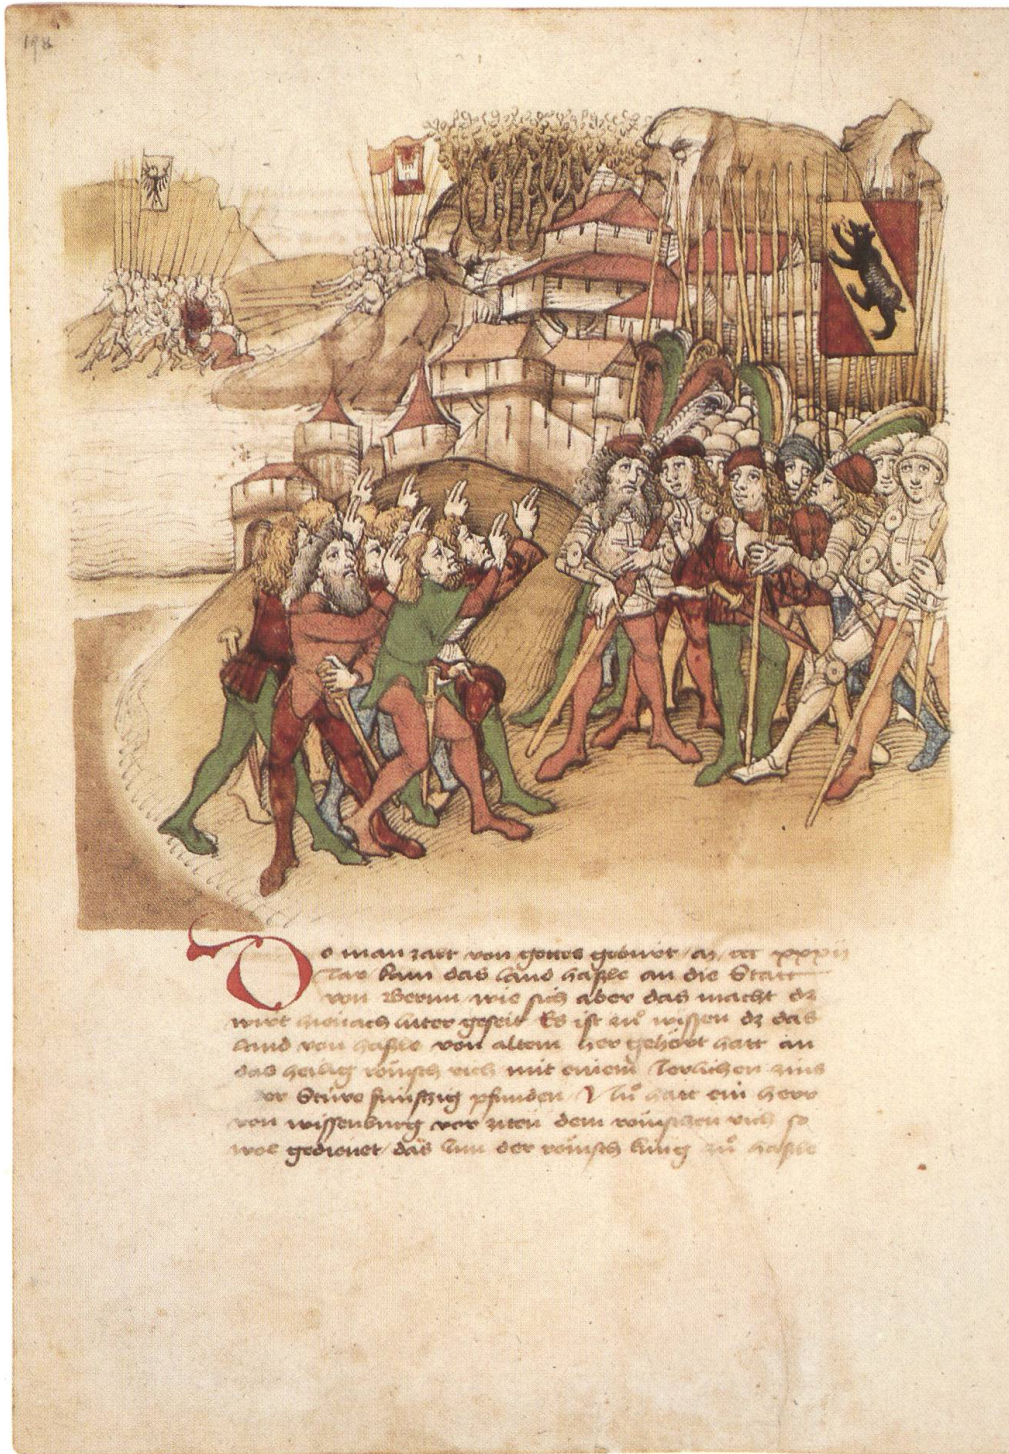 198
Do man zalt von gottes gebürt m ccc xxxii
Jar kam das land hasle an die Statt
von Bernn wie sich aber das macht dz
wirt hienach luter geseit Es ist zuͦ wissen dz das
land von hasle von altem her gehört hatt an
das heilig römsch rich mit einem Jerlichen zins
der Stüre fünffzig pfunden Nuͦ hatt ein herr
von wissenburg vor ziten dem römschen rich so
wol gedienet das Im der römsch küng zuͦ hasle